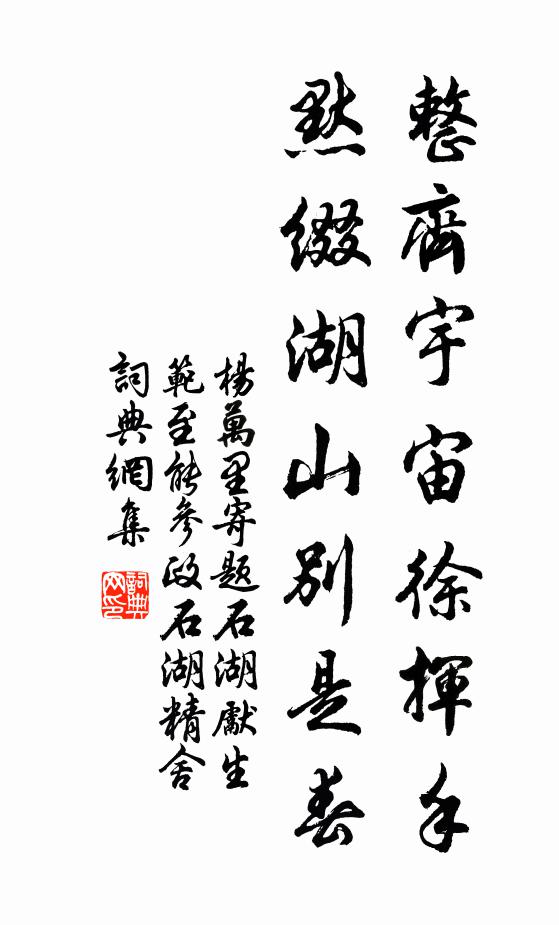 整齊宇宙徐揮手
點綴湖山別是春
楊萬里寄題石湖獻生
範至能參政石湖精舍
詞典網集
詞典网印